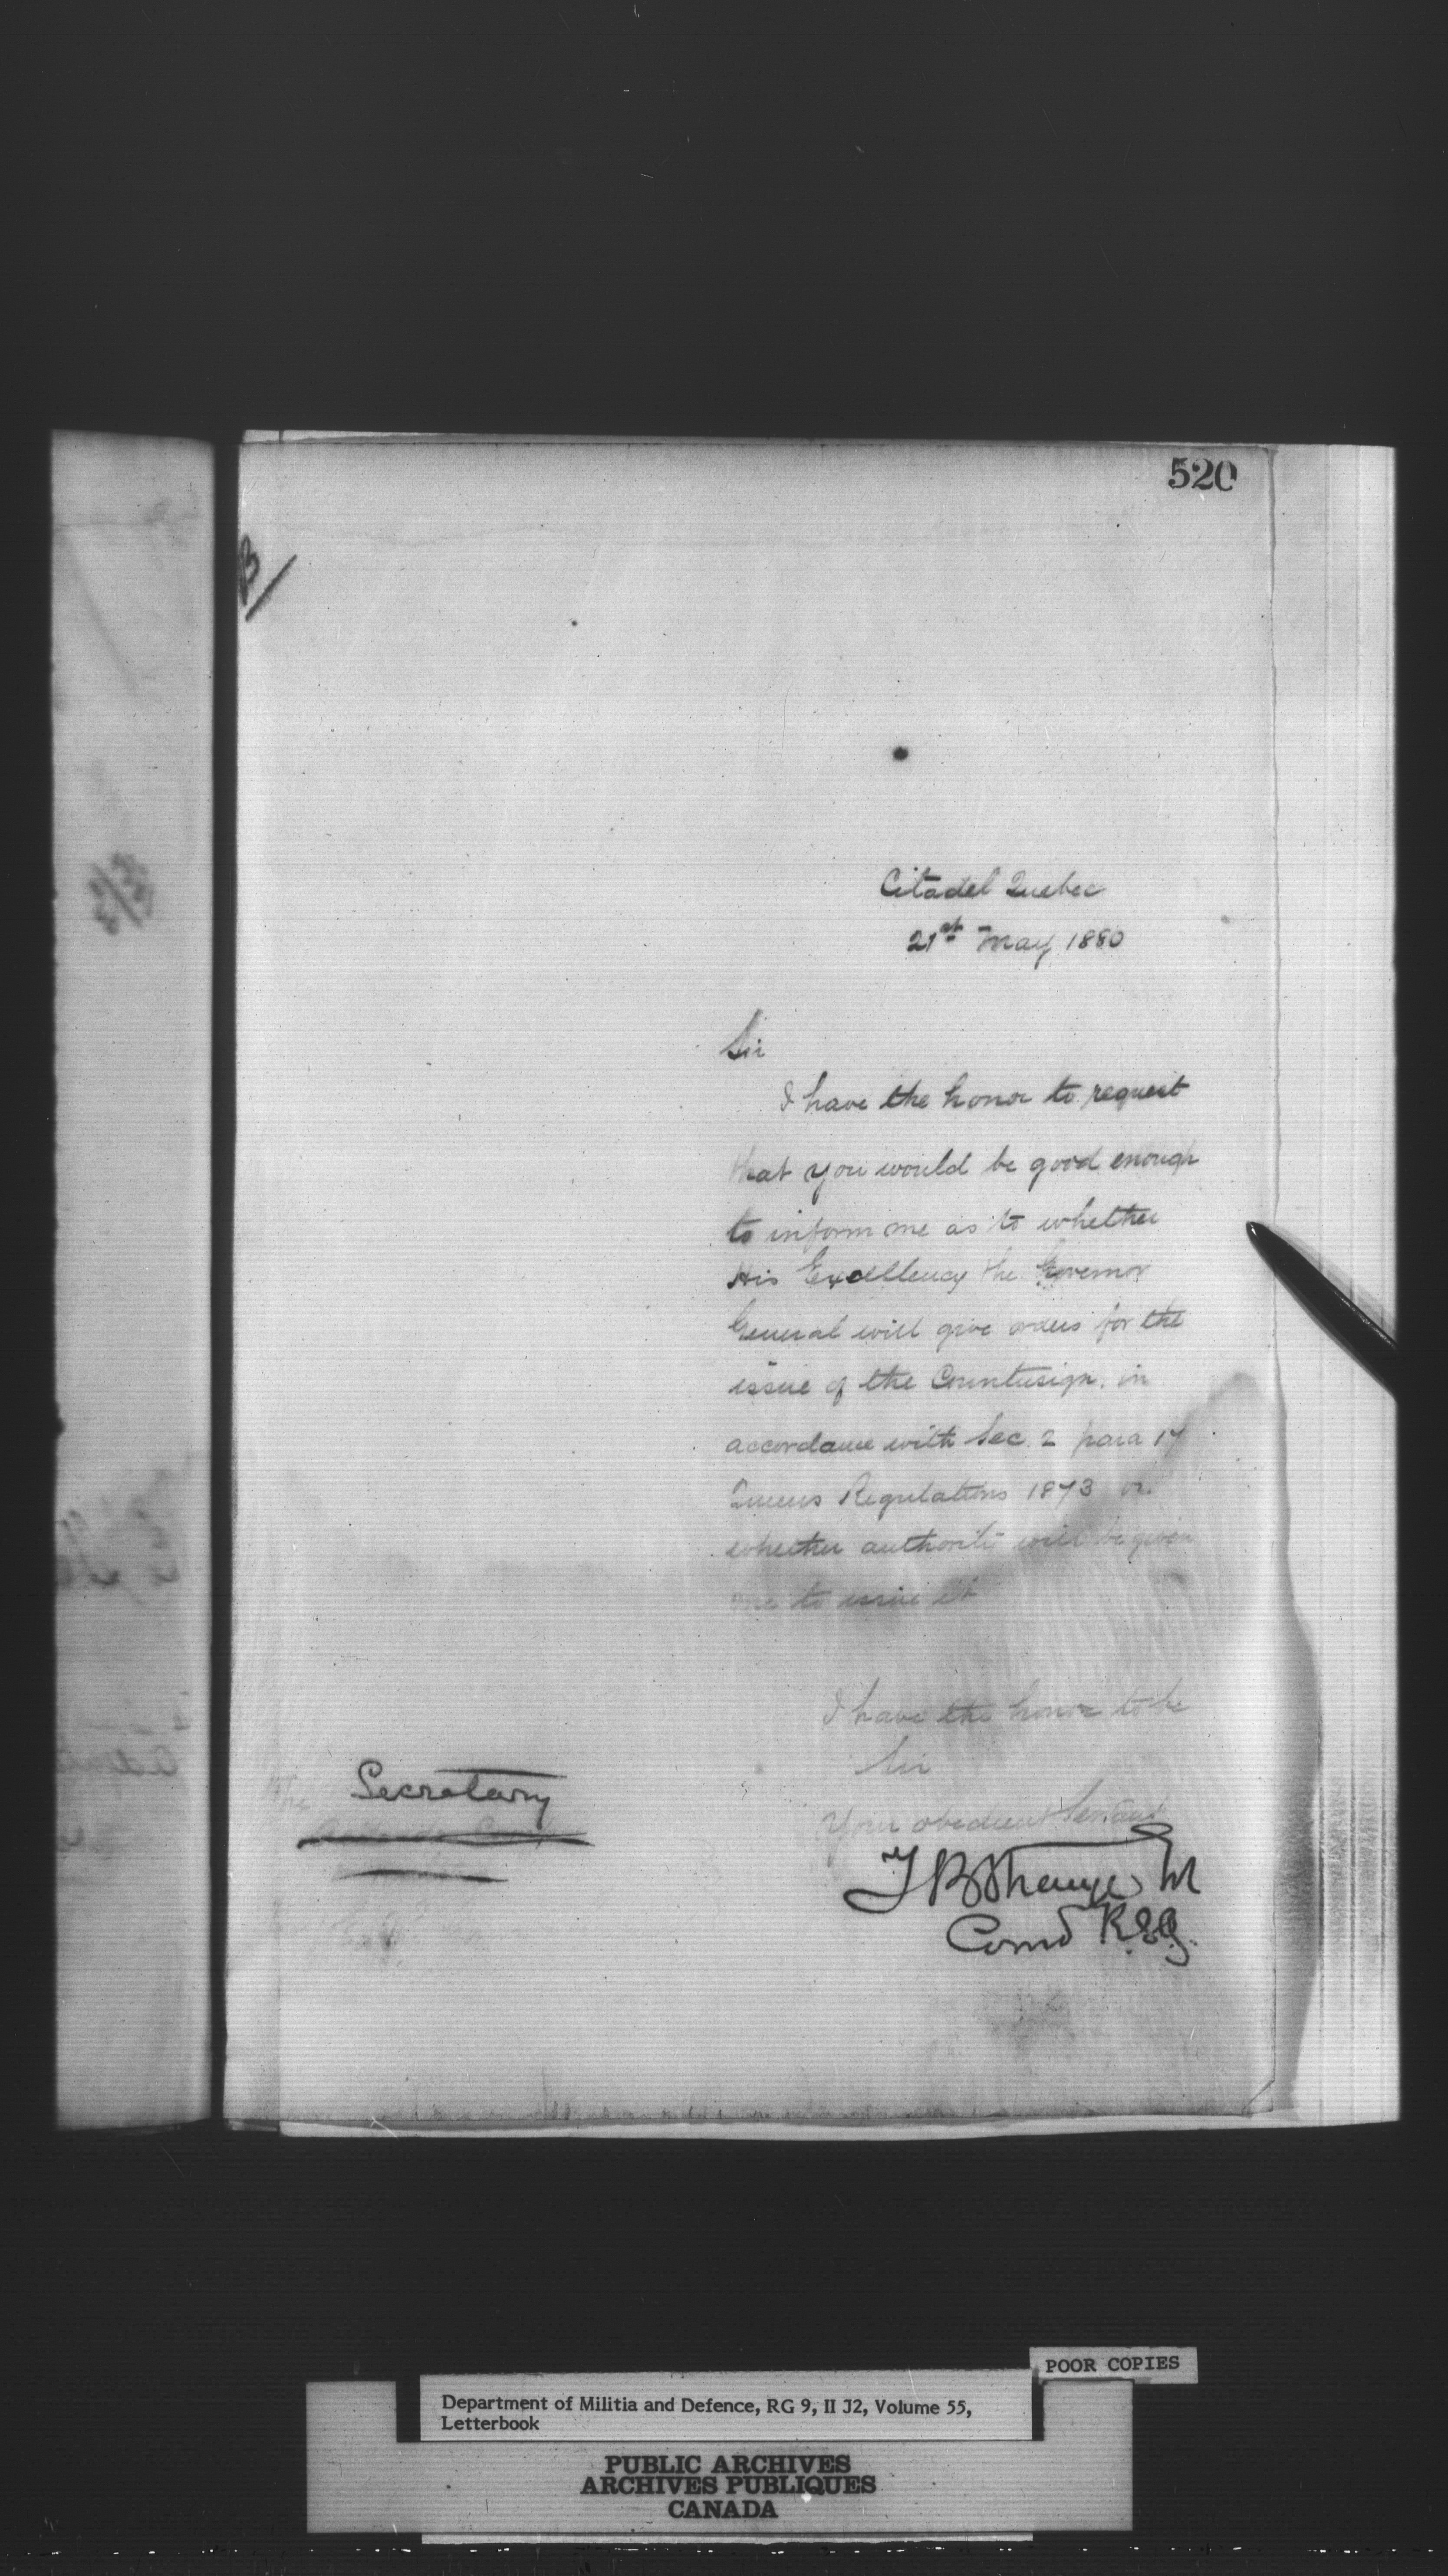 520
B/
Citadel Quebec
21st May 1880
Sir
I have the honor to request
that you would be good enough
to inform me as to whether
His Excellency the Governor
General will give orders for the
issue of the Countersign. in
accordance with Sec. 2 para 17
Queens Regulations 1873 or
whether authority will be given
me to issue it
I have the honor to be
Sir
Your obedient Servant
T B Strange
Comd
The Secretary
POOR COPIES
Department of Militia and Defence, RG 9, II J2, Volume 55,
Letterbook
PUBLIC ARCHIVES
ARCHIVES PUBLIQUES
CANADA